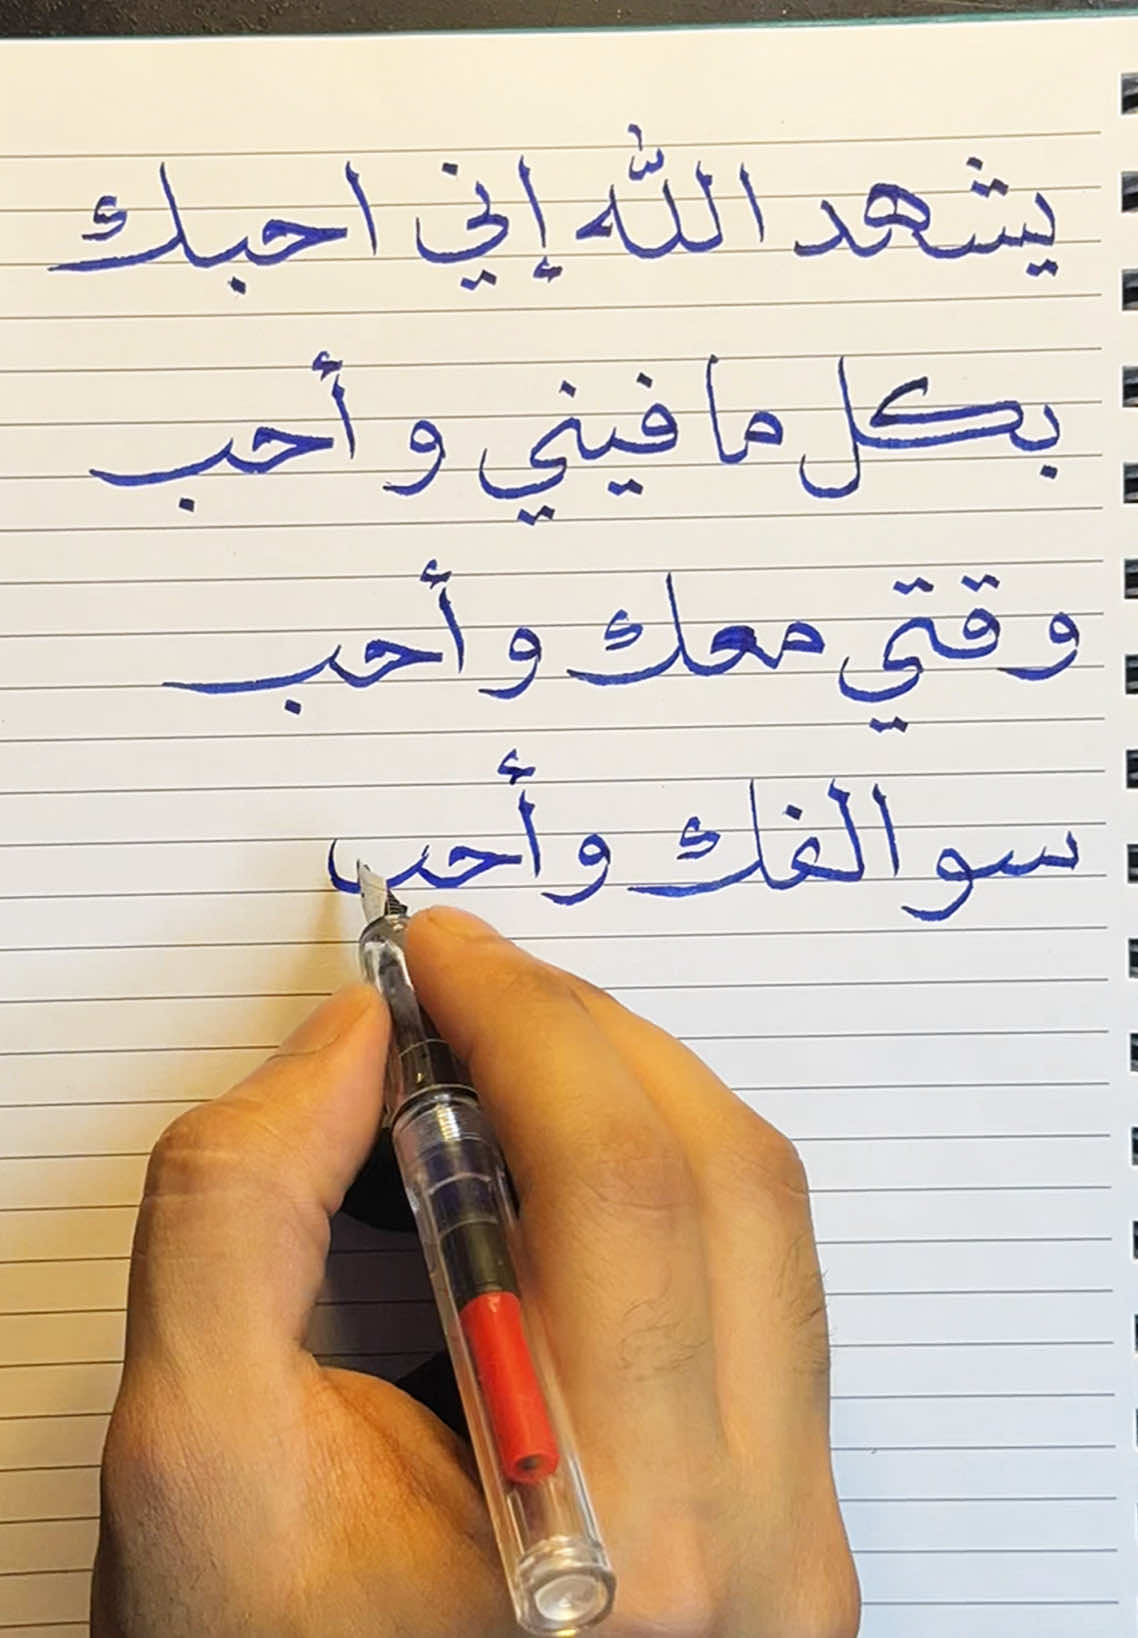 يشهد الله إني احبك
بكل ما فيني و أحب
وقتي معك و أحب
سوالفك و أحب